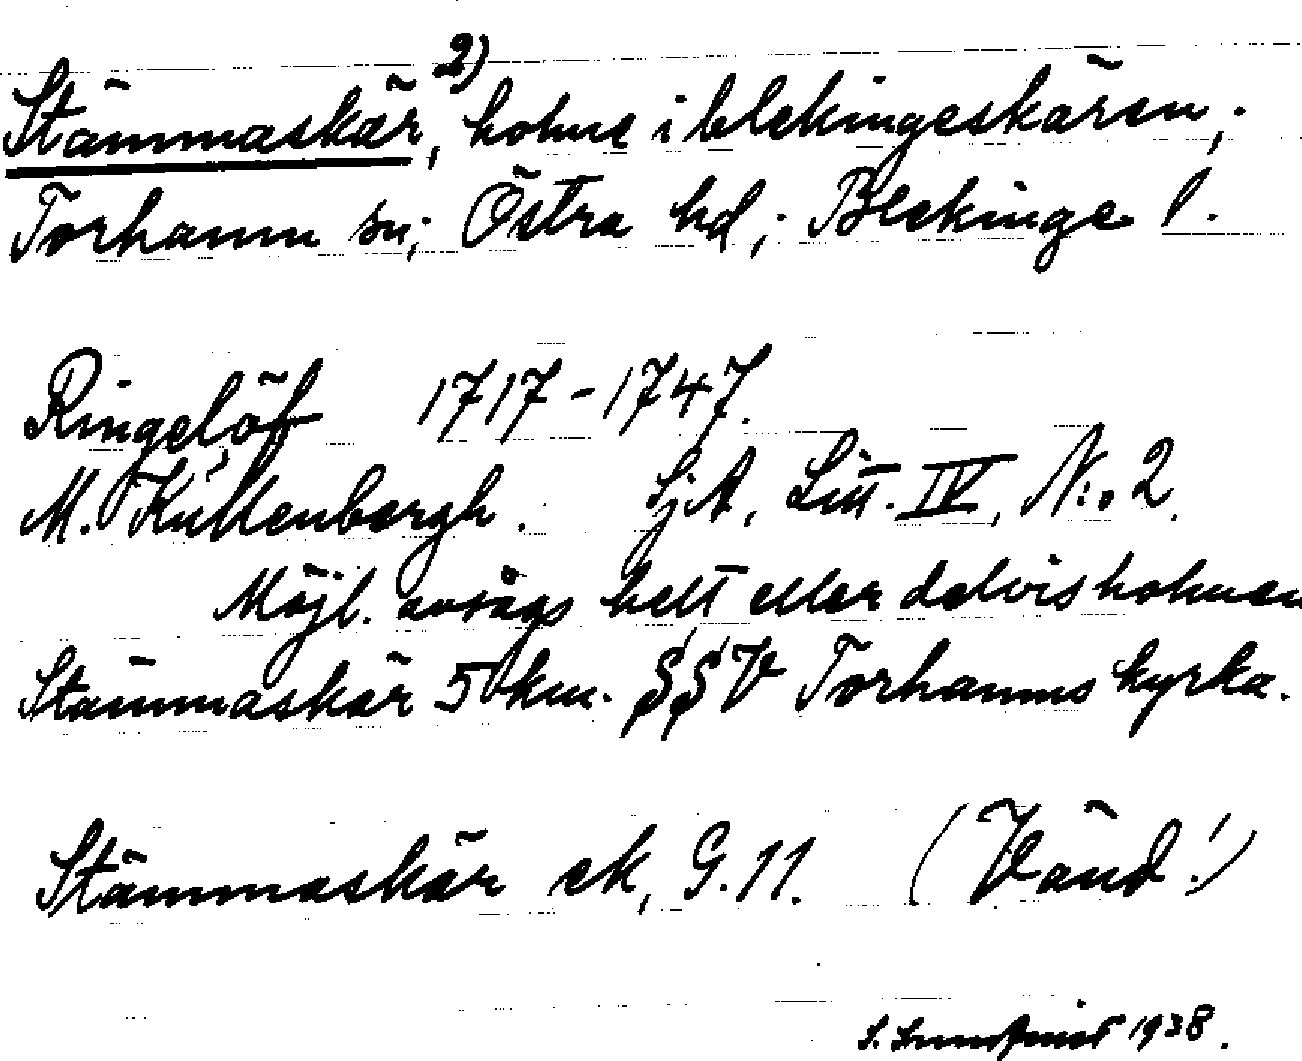 Stämmaskär, 2) holme i blekingeskären;
Torhamn sn; Östra hd; Blekinge l.
Ringelöf 1717-1747.
M. Kullenbergh. SjA, Litt. IV, N:o 2.
Möjl. avsågs helt eller delvis holmen
Stämmaskär 5 km. SSV Torhamns kyrka.
Stämmaskär ek, G.11. (Vänd!)
S. Lundqvist 1938.